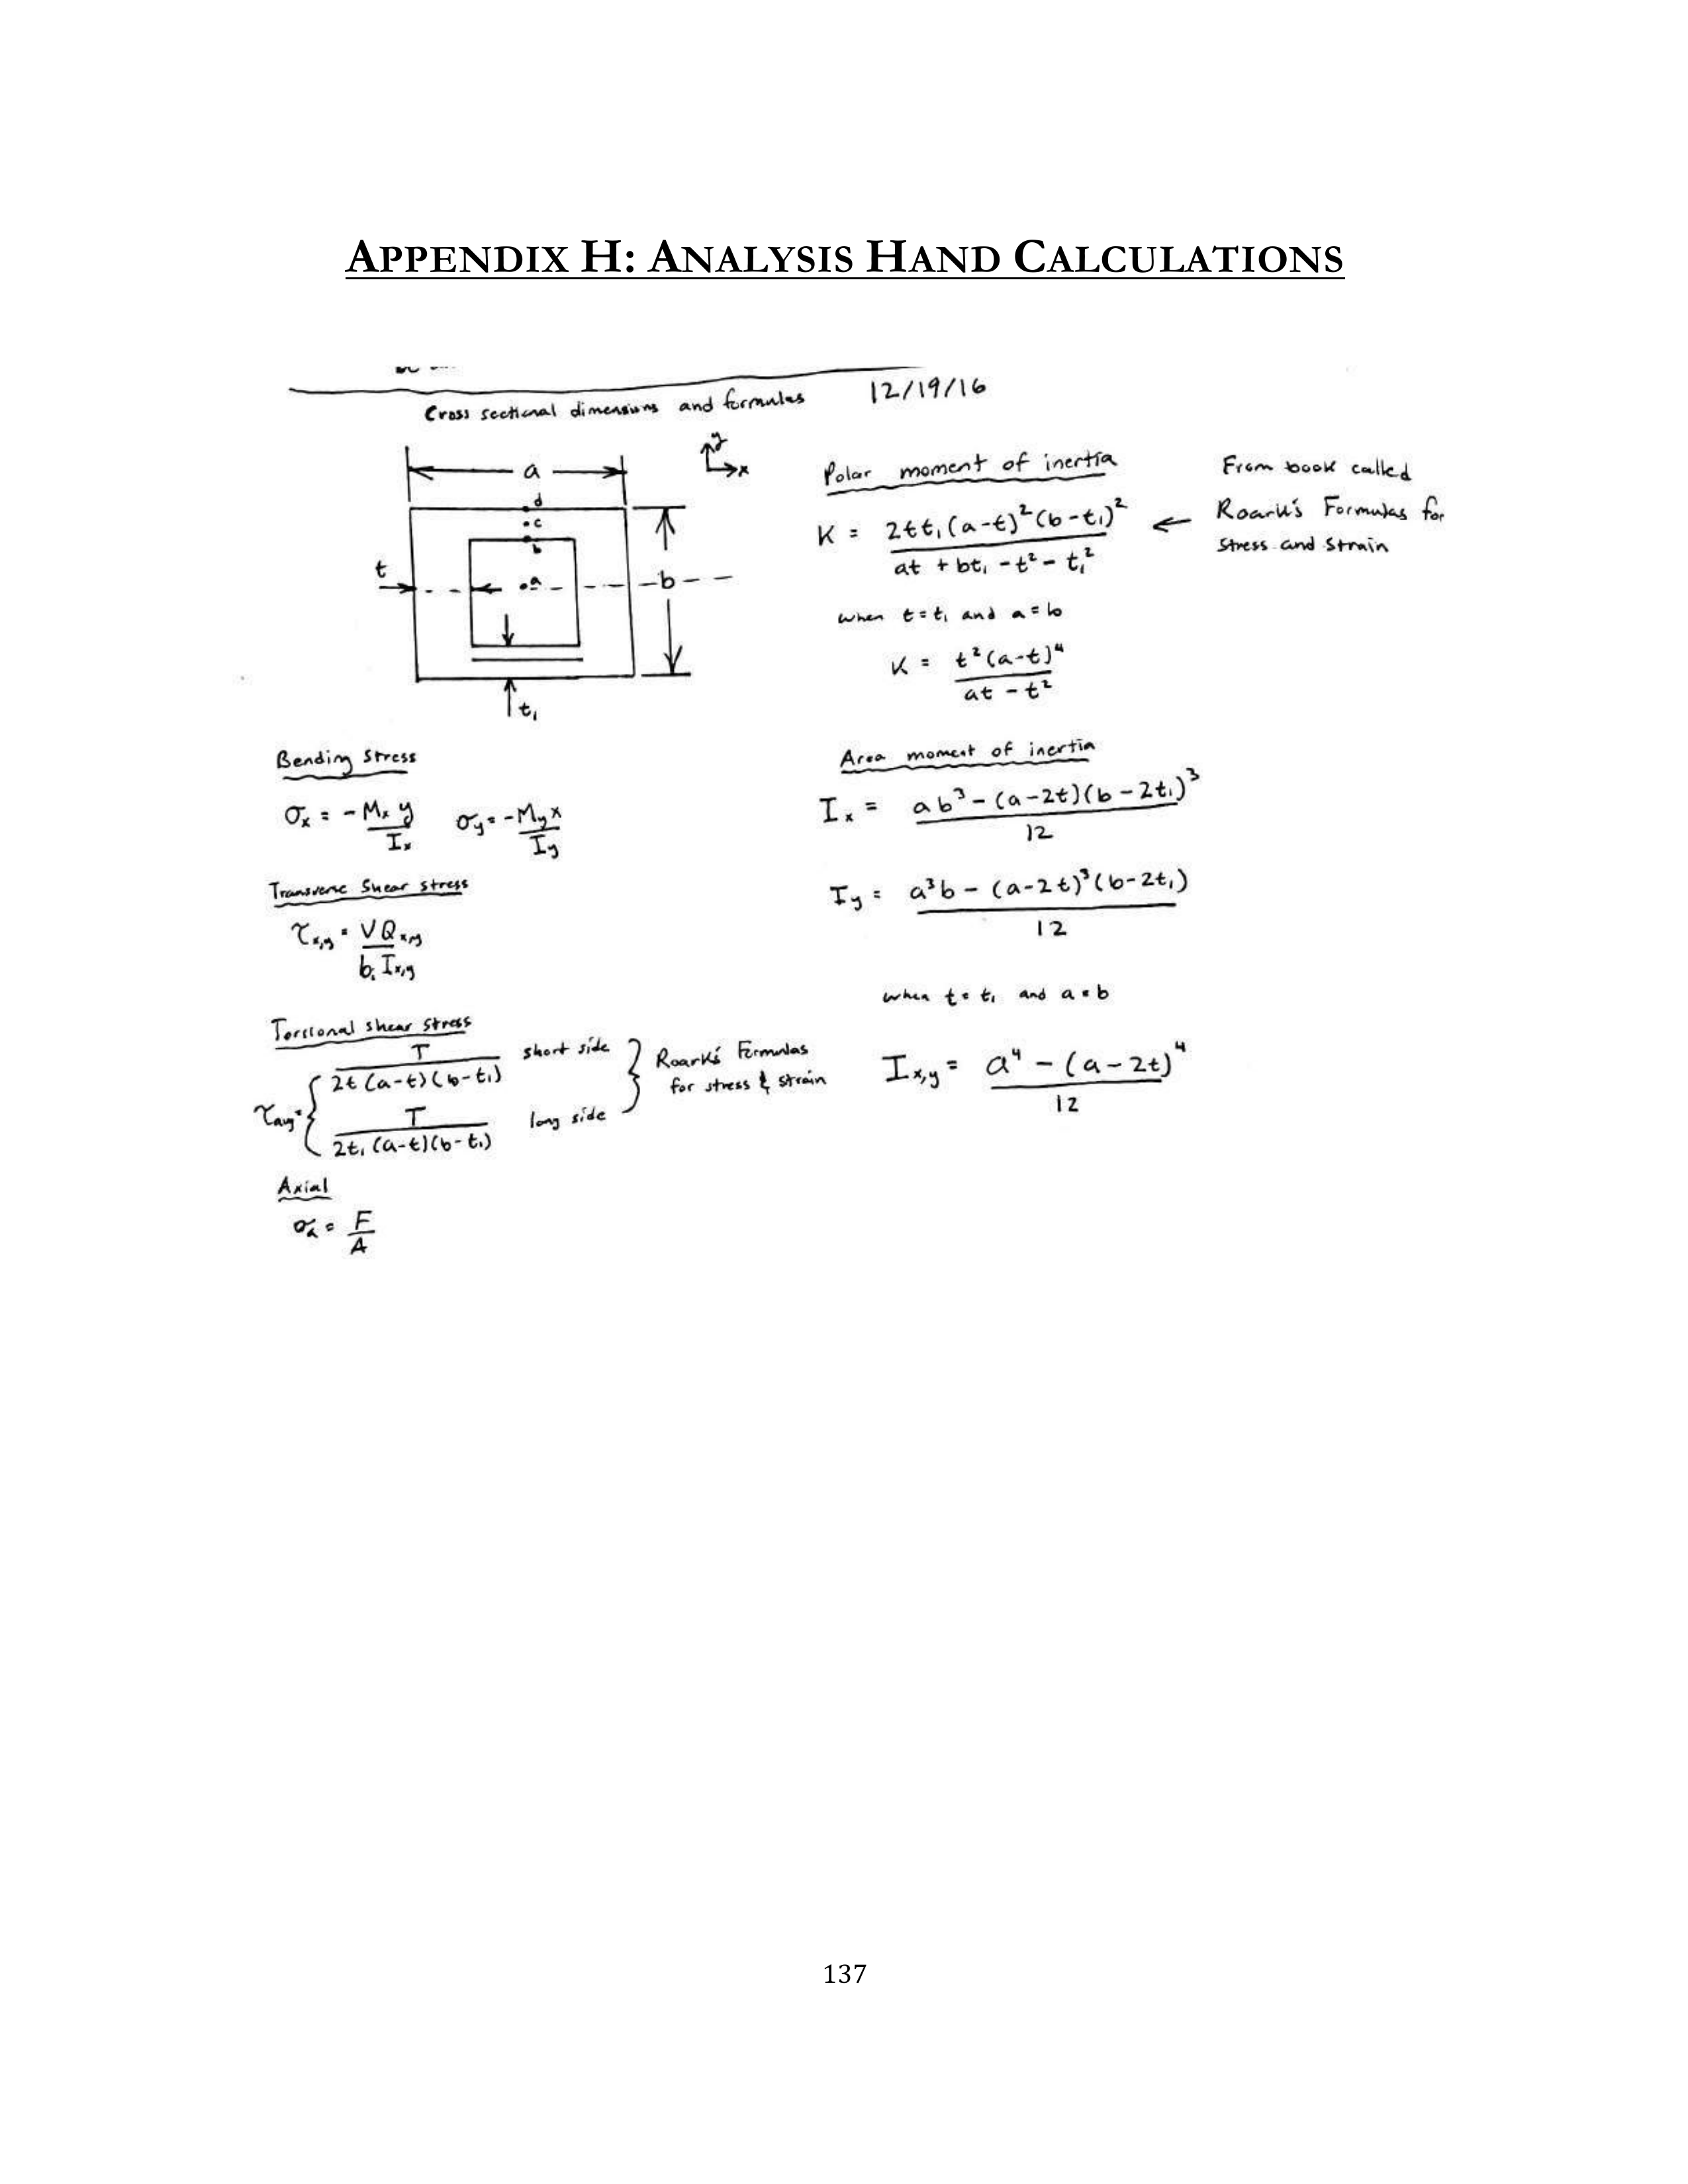 APPENDIX H: ANALYSIS HAND CALCULATIONS
Cross sectional dimensions and formulas 12/19/16
a
y
x
d
c
b
t
a
b
t₁
Polar moment of inertia
K = 2tt₁(a-t)²(b-t₁)² / at + bt₁ - t² - t₁²
← From book called
Roark's Formulas for
Stress and Strain
when t=t₁ and a=b
K = t²(a-t)⁴ / at - t²
Bending Stress
σx = -Mx y / Ix σy = -My x / Iy
Transverse Shear stress
τx,y = VQx,y / bᵢ Ix,y
Torsional shear stress
τavg = { T / 2t(a-t)(b-t₁) short side
T / 2t₁(a-t)(b-t₁) long side
} Roark's Formulas
for stress & strain
Axial
σa = F / A
Area moment of inertia
Ix = ab³ - (a-2t)(b-2t₁)³ / 12
Iy = a³b - (a-2t)³(b-2t₁) / 12
when t=t₁ and a=b
Ix,y = a⁴ - (a-2t)⁴ / 12
137